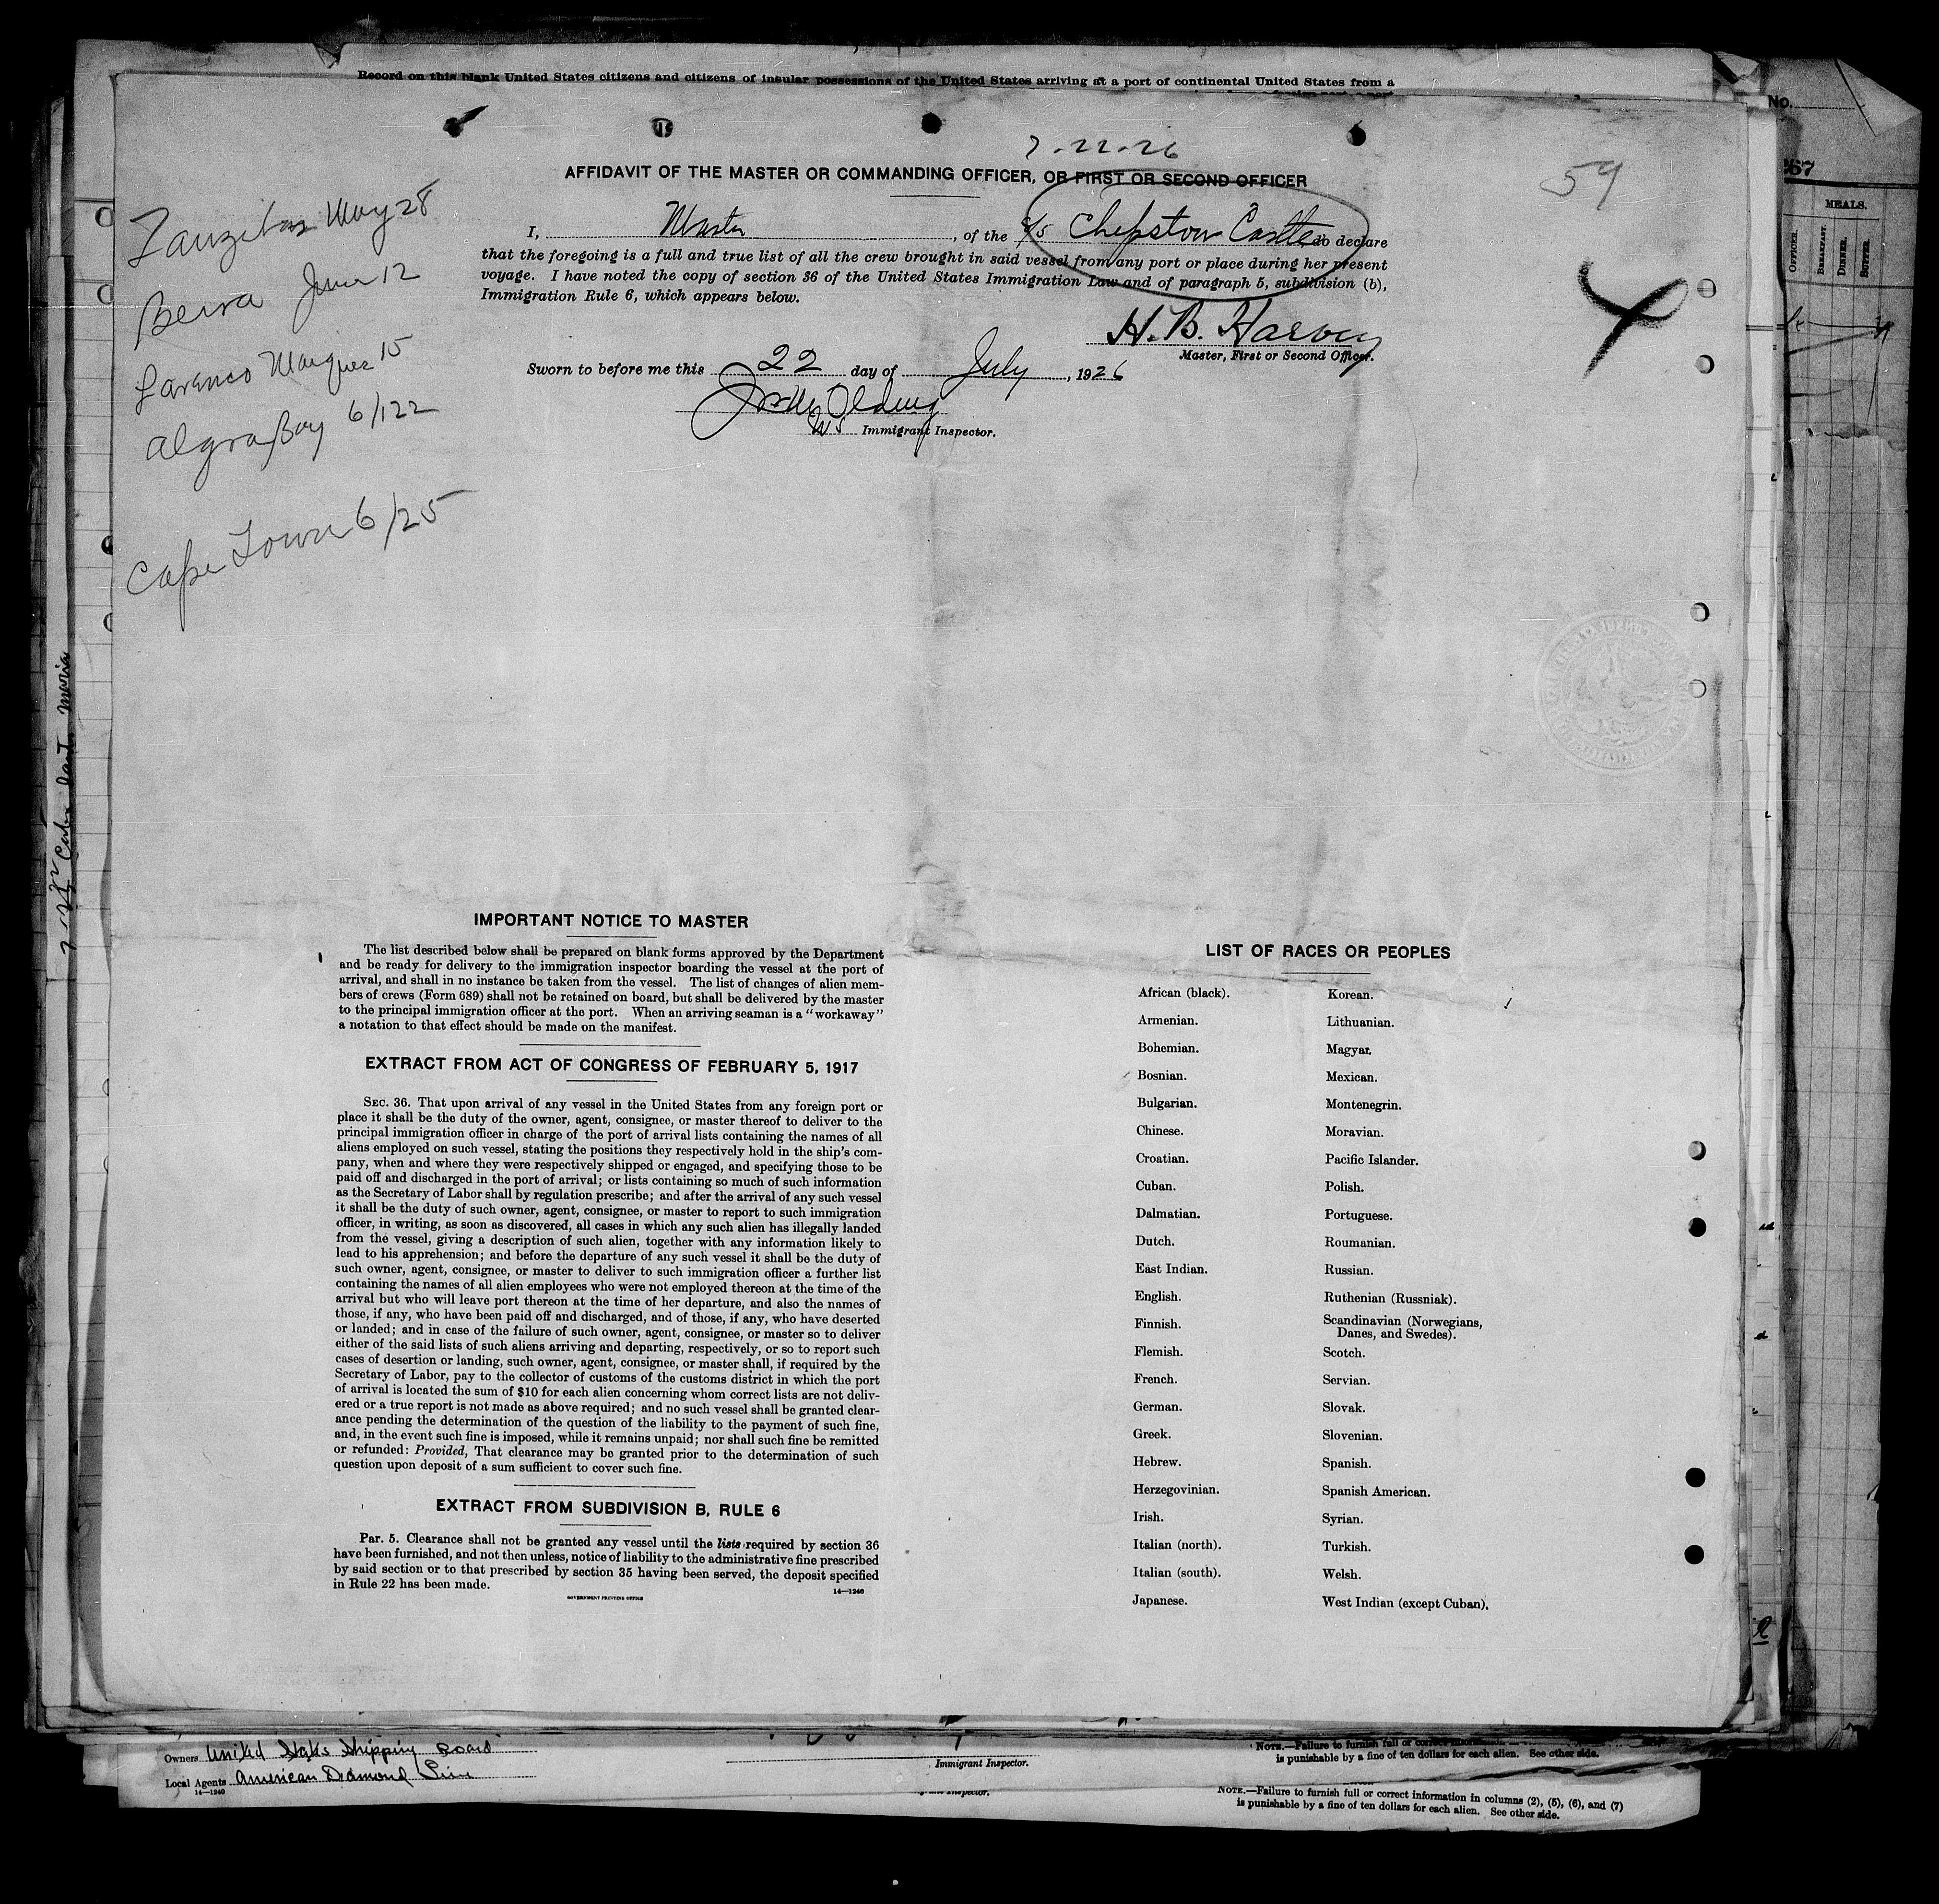 Record on this blank United States citizens and citizens of insular possessions of the United States arriving at a port of continental United States from a
No.
67
MEALS.
OFFICER.
BREAKFAST.
DINNER.
SUPPER.
7-22-26
59
AFFIDAVIT OF THE MASTER OR COMMANDING OFFICER, OR FIRST OR SECOND OFFICER
I, Master, of the S/S Chepstow Castle do declare
that the foregoing is a full and true list of all the crew brought in said vessel from any port or place during her present
voyage. I have noted the copy of section 36 of the United States Immigration Law and of paragraph 5, subdivision (b),
Immigration Rule 6, which appears below.
H. B. Harvey
Master, First or Second Officer.
Sworn to before me this 22 day of July, 1926
Immigrant Inspector.
Zanzibar May 28
Beira June 12
Lorenco Marques 15
Algoa Bay 6/22
Cape Town 6/25
IMPORTANT NOTICE TO MASTER
The list described below shall be prepared on blank forms approved by the Department
and be ready for delivery to the immigration inspector boarding the vessel at the port of
arrival, and shall in no instance be taken from the vessel. The list of changes of alien mem-
bers of crews (Form 689) shall not be retained on board, but shall be delivered by the master
to the principal immigration officer at the port. When an arriving seaman is a "workaway"
a notation to that effect should be made on the manifest.
EXTRACT FROM ACT OF CONGRESS OF FEBRUARY 5, 1917
SEC. 36. That upon arrival of any vessel in the United States from any foreign port or
place it shall be the duty of the owner, agent, consignee, or master thereof to deliver to the
principal immigration officer in charge of the port of arrival lists containing the names of all
aliens employed on such vessel, stating the positions they respectively hold in the ship's com-
pany, when and where they were respectively shipped or engaged, and specifying those to be
paid off and discharged in the port of arrival; or lists containing so much of such information
as the Secretary of Labor shall by regulation prescribe; and after the arrival of any such vessel
it shall be the duty of such owner, agent, consignee, or master to report to such immigration
officer, in writing, as soon as discovered, all cases in which any such alien has illegally landed
from the vessel, giving a description of such alien, together with any information likely to
lead to his apprehension; and before the departure of any such vessel it shall be the duty of
such owner, agent, consignee, or master to deliver to such immigration officer a further list
containing the names of all alien employees who were not employed thereon at the time of the
arrival but who will leave port thereon at the time of her departure, and also the names of
those, if any, who have been paid off and discharged, and of those, if any, who have deserted
or landed; and in case of the failure of such owner, agent, consignee, or master so to deliver
either of the said lists of such aliens arriving and departing, respectively, or so to report such
cases of desertion or landing, such owner, agent, consignee, or master shall, if required by the
Secretary of Labor, pay to the collector of customs of the customs district in which the port
of arrival is located the sum of $10 for each alien concerning whom correct lists are not deliv-
ered or a true report is not made as above required; and no such vessel shall be granted clear-
ance pending the determination of the question of the liability to the payment of such fine,
and, in the event such fine is imposed, while it remains unpaid; nor shall such fine be remitted
or refunded: Provided, That clearance may be granted prior to the determination of such
question upon deposit of a sum sufficient to cover such fine.
EXTRACT FROM SUBDIVISION B, RULE 6
Par. 5. Clearance shall not be granted any vessel until the lists required by section 36
have been furnished, and not then unless, notice of liability to the administrative fine prescribed
by said section or to that prescribed by section 35 having been served, the deposit specified
in Rule 22 has been made.
14—1240
GOVERNMENT PRINTING OFFICE
LIST OF RACES OR PEOPLES
African (black).
Armenian.
Bohemian.
Bosnian.
Bulgarian.
Chinese.
Croatian.
Cuban.
Dalmatian.
Dutch.
East Indian.
English.
Finnish.
Flemish.
French.
German.
Greek.
Hebrew.
Herzegovinian.
Irish.
Italian (north).
Italian (south).
Japanese.
Korean.
Lithuanian.
Magyar.
Mexican.
Montenegrin.
Moravian.
Pacific Islander.
Polish.
Portuguese.
Roumanian.
Russian.
Ruthenian (Russniak).
Scandinavian (Norwegians,
Danes, and Swedes).
Scotch.
Servian.
Slovak.
Slovenian.
Spanish.
Spanish American.
Syrian.
Turkish.
Welsh.
West Indian (except Cuban).
Owners United States Shipping Board
Local Agents American Diamond Line
14—1240
Immigrant Inspector.
NOTE.—Failure to furnish full or correct
is punishable by a fine of ten dollars for each alien. See other side.
Inspector.
NOTE.—Failure to furnish full or correct information in columns (2), (5), (6), and (7)
is punishable by a fine of ten dollars for each alien. See other side.